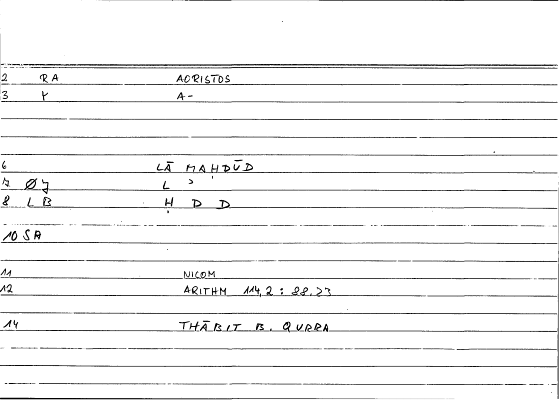 2 RA AORISTOS
3 Y A-
6 LĀ MAḤDŪD
7 Øȷ L ʾ
8 LB Ḥ D D
10 SA
11 NICOM
12 ARITHM 114,2 : 88.23
14 THĀBIT B. QURRA